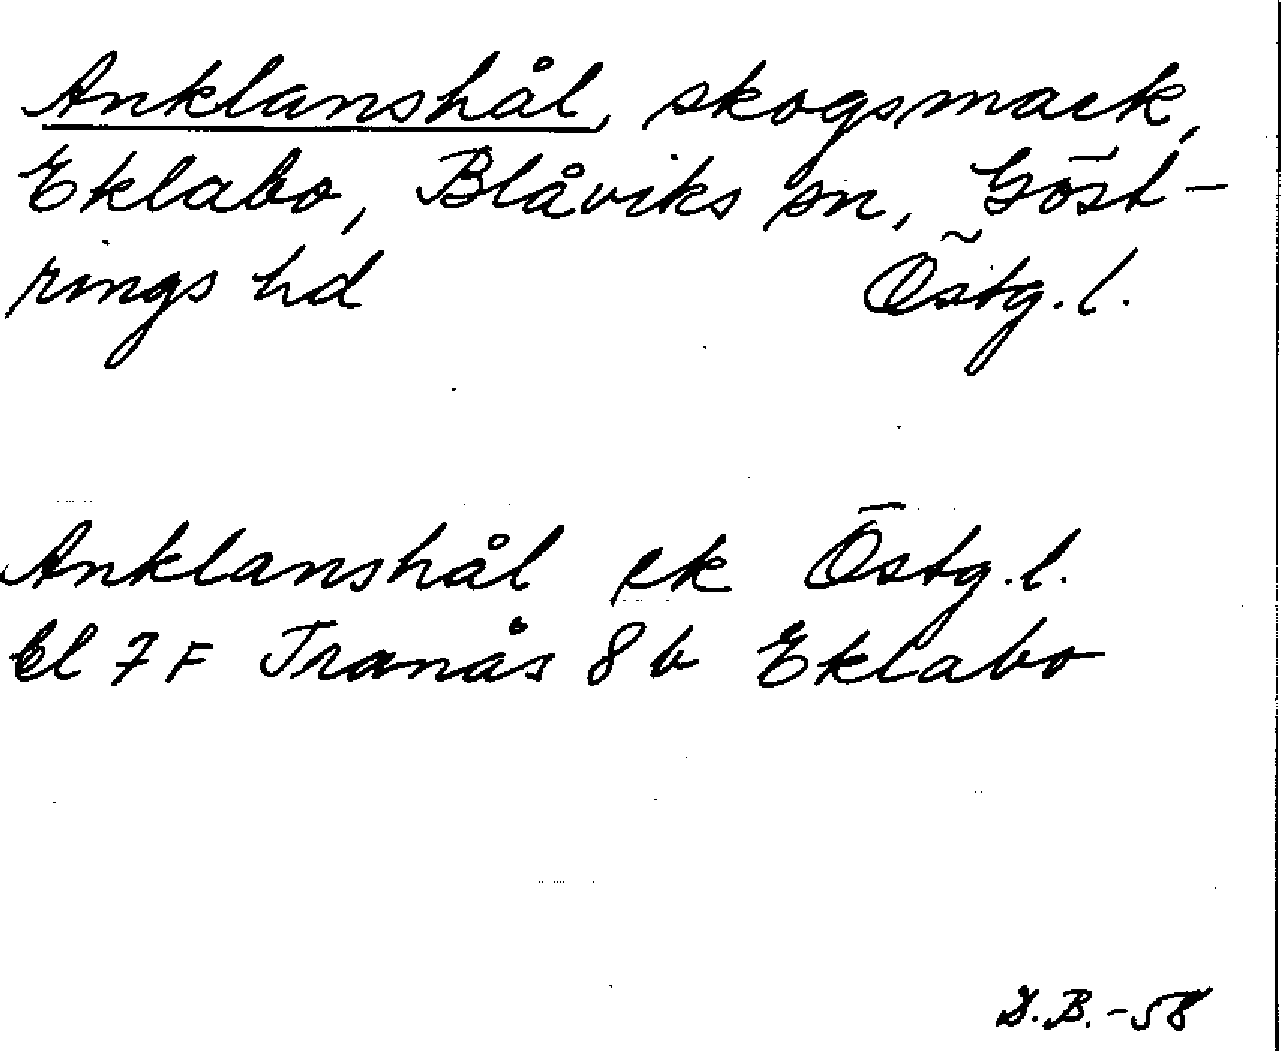 Anklanshål, skogsmark,
Eklabo, Blåviks sn, Göst-
rings hd Östg. l.
Anklanshål ek Östg. l.
bl 7 F Tranås 8 b Eklabo
D.B. -58